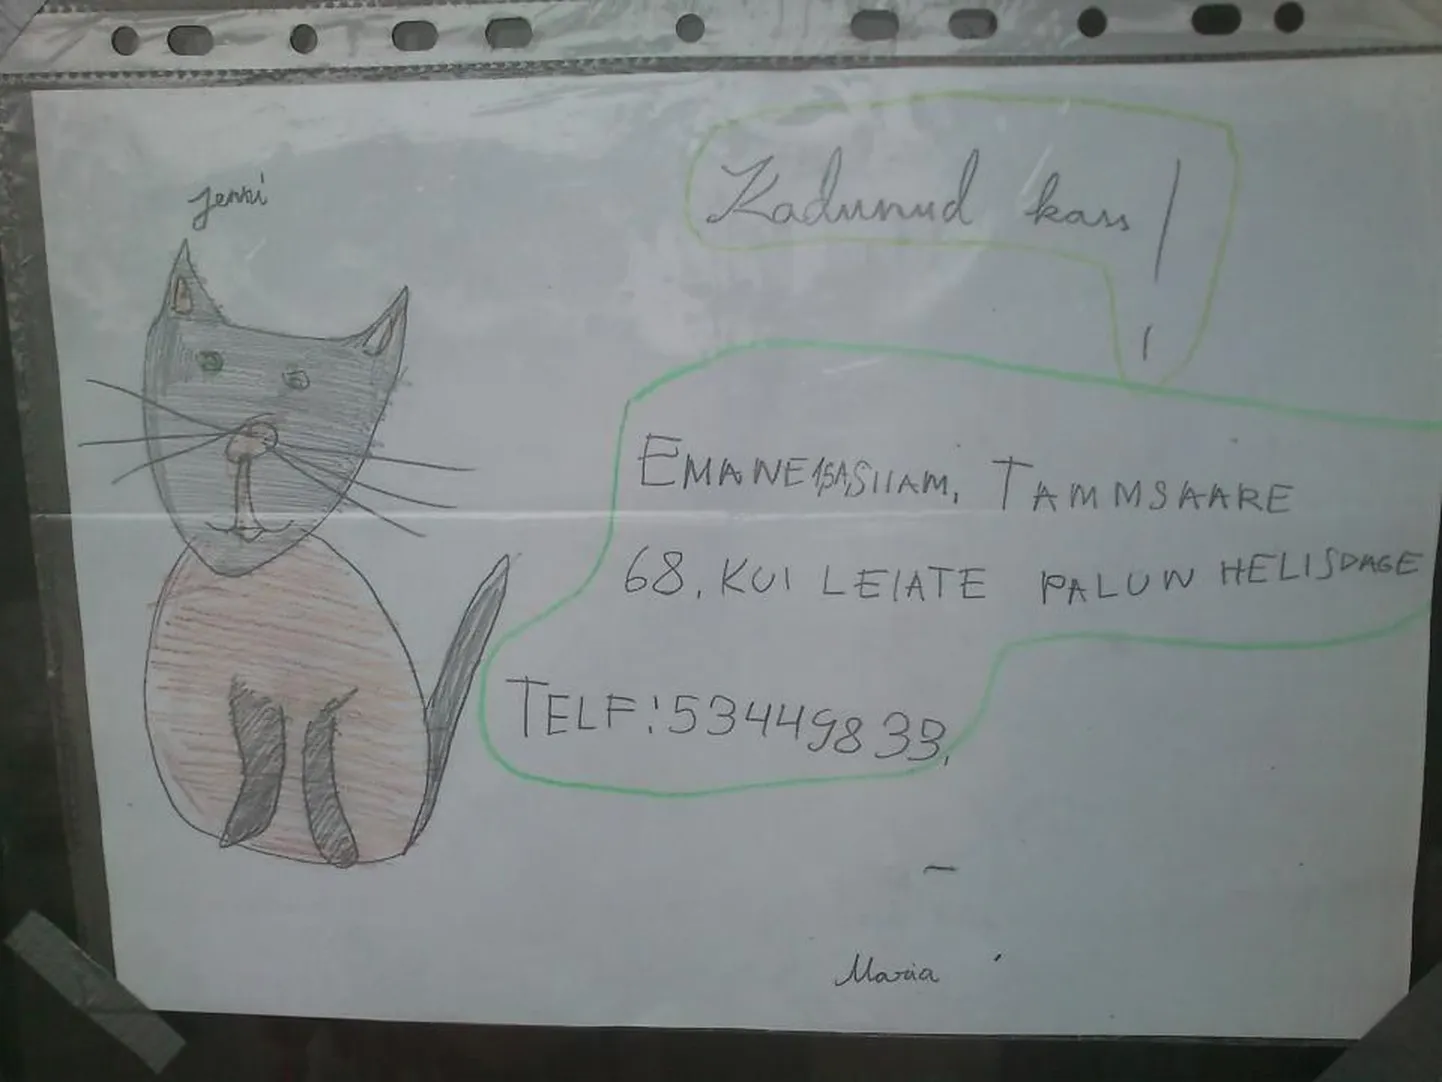 Jenki
Kadunud kass!
EMANE, TAMMSAARE
68. KUI LEIATE PALUN HELISDAGE
TELF:53449833.
Maria